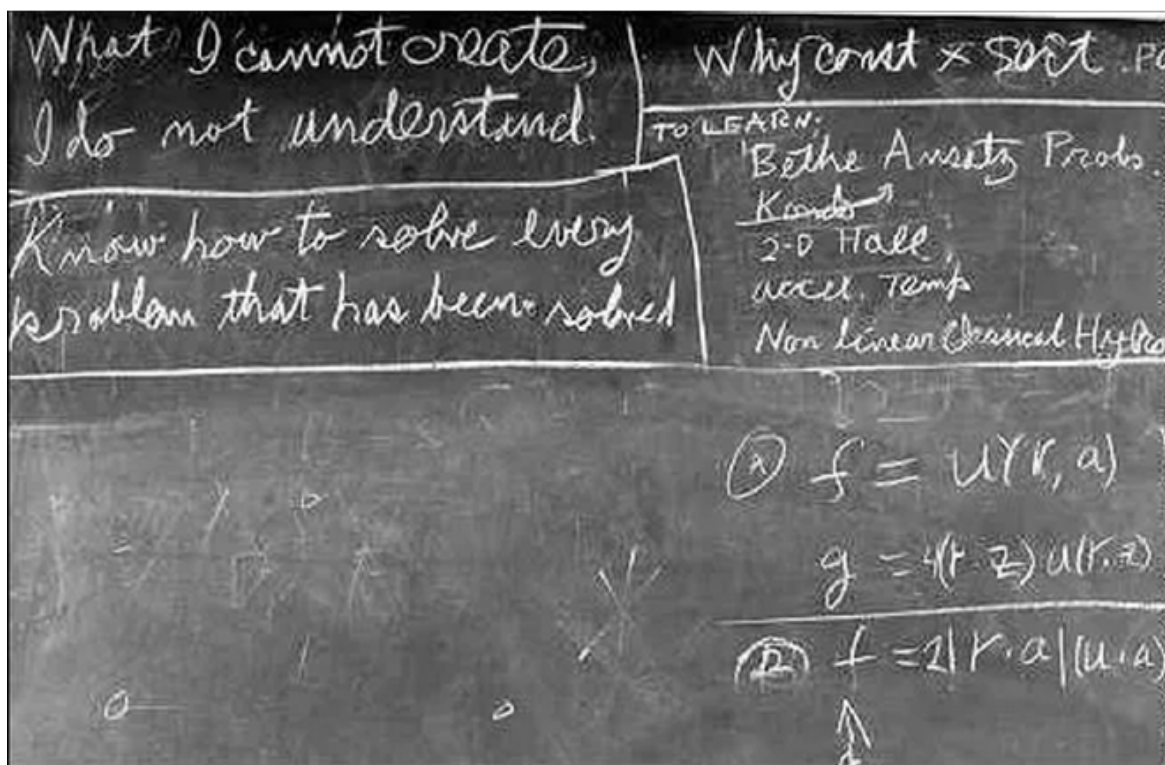 What I cannot create,
I do not understand.
Know how to solve every
problem that has been solved
Why const × sort .PO
TO LEARN:
Bethe Ansatz Probs.
Kondo
2-D Hall
accel. Temp
Non linear Classical Hydro
f = u(r, a)
g = 4(r·z) u(r,z)
f = 2|r·a|(u·a)